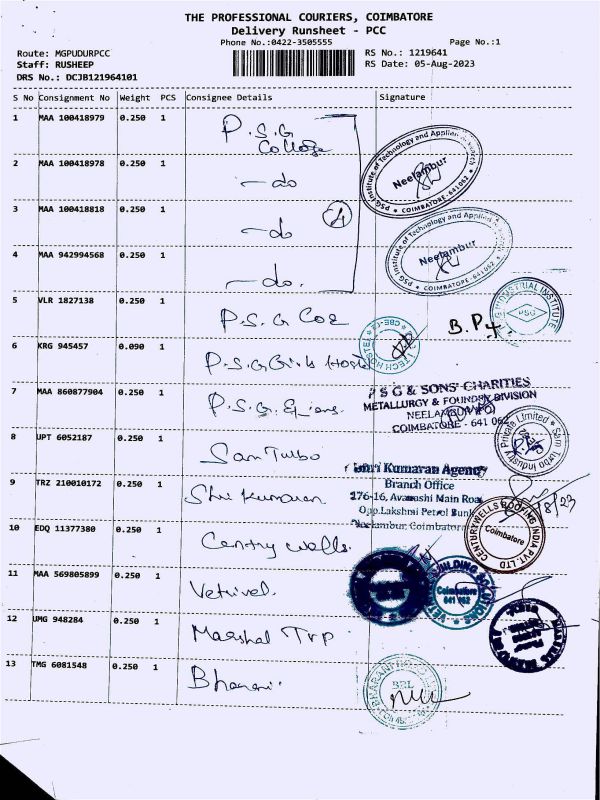 THE PROFESSIONAL COURIERS, COIMBATORE
Delivery Runsheet - PCC
Phone No.:0422-3505555
Page No.:1
Route: MGPUDURPCC
RS No.: 1219641
Staff: RUSHEEP
RS Date: 05-Aug-2023
DRS No.: DCJB121964101
S No Consignment No Weight PCS Consignee Details Signature
1 MAA 100418979 0.250 1 P.S.G College
2 MAA 100418978 0.250 1 - do
3 MAA 100418818 0.250 1 - do
4 MAA 942994568 0.250 1 - do.
PSG Institute of Technology and Applied Research
Neelambur
COIMBATORE - 641 062
PSG Institute of Technology and Applied
Neelambur
COIMBATORE-641 062
5 VLR 1827138 0.250 1 P.S.G
INDUSTRIAL INSTITUTE
PSG
6 KRG 945457 0.090 1 P.S.G Girls Hostel
7 MAA 860877904 0.250 1 P.S.G.
P S G & SONS' CHARITIES
METALLURGY & FOUNDRY DIVISION
NEELAMBUR (PO)
COIMBATORE - 641 062
8 UPT 6052187 0.250 1 Sam Turbo
Sam Turbo Industry Private Limited
9 TRZ 210010172 0.250 1 Shri Kumaran
Kumaran Agency
Branch Office
176-16, Avanashi Main Road
Opp.Lakshmi Petrol Bunk
Neelambur, Coimbatore
10 EDQ 11377380 0.250 1 Centry walls.
CENTURYWELLS ROOFING INDIA PVT. LTD
Coimbatore
11 MAA 569805899 0.250 1 Vetrivel.
BUILDING SOLUTIONS
Coimbatore
641 062
12 UMG 948284 0.250 1 Marshal Trp
13 TMG 6081548 0.250 1 Bharani